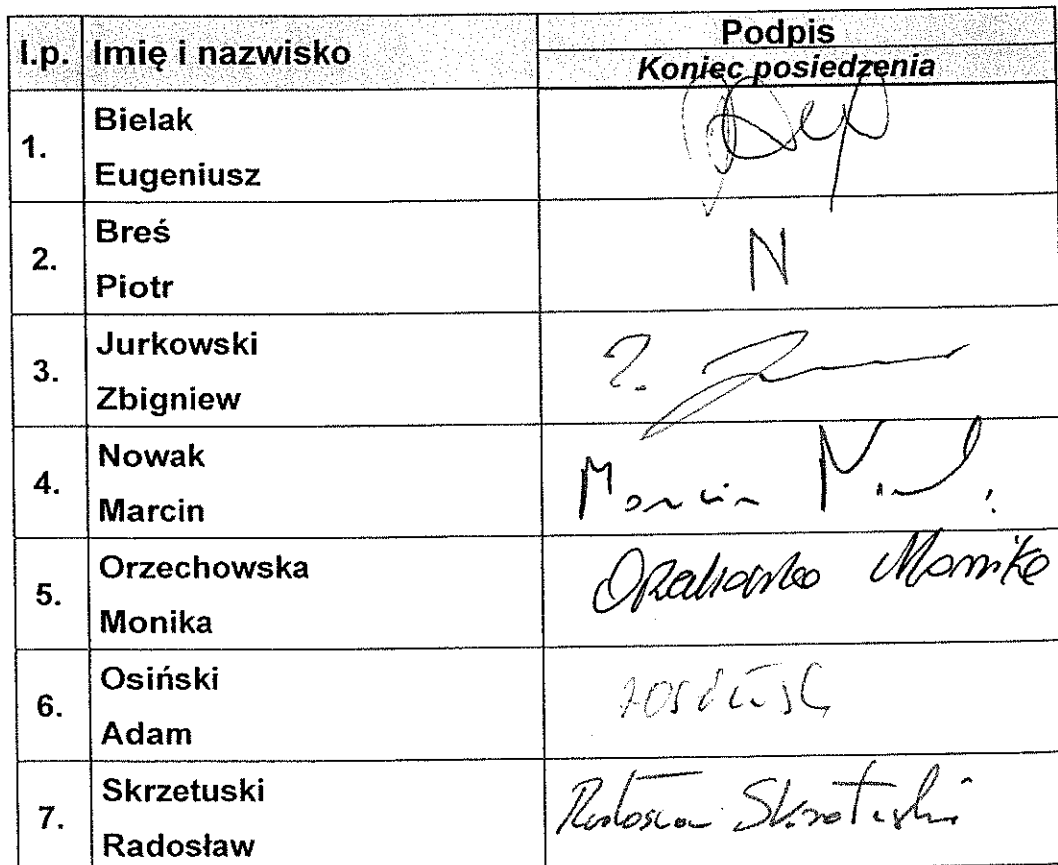 l.p. Imię i nazwisko Podpis
Koniec posiedzenia
1. Bielak
Eugeniusz
2. Breś N
Piotr
3. Jurkowski
Zbigniew
4. Nowak Marcin
Marcin
5. Orzechowska Orzechowska Monika
Monika
6. Osiński
Adam
7. Skrzetuski Radosław Skrzetuski
Radosław